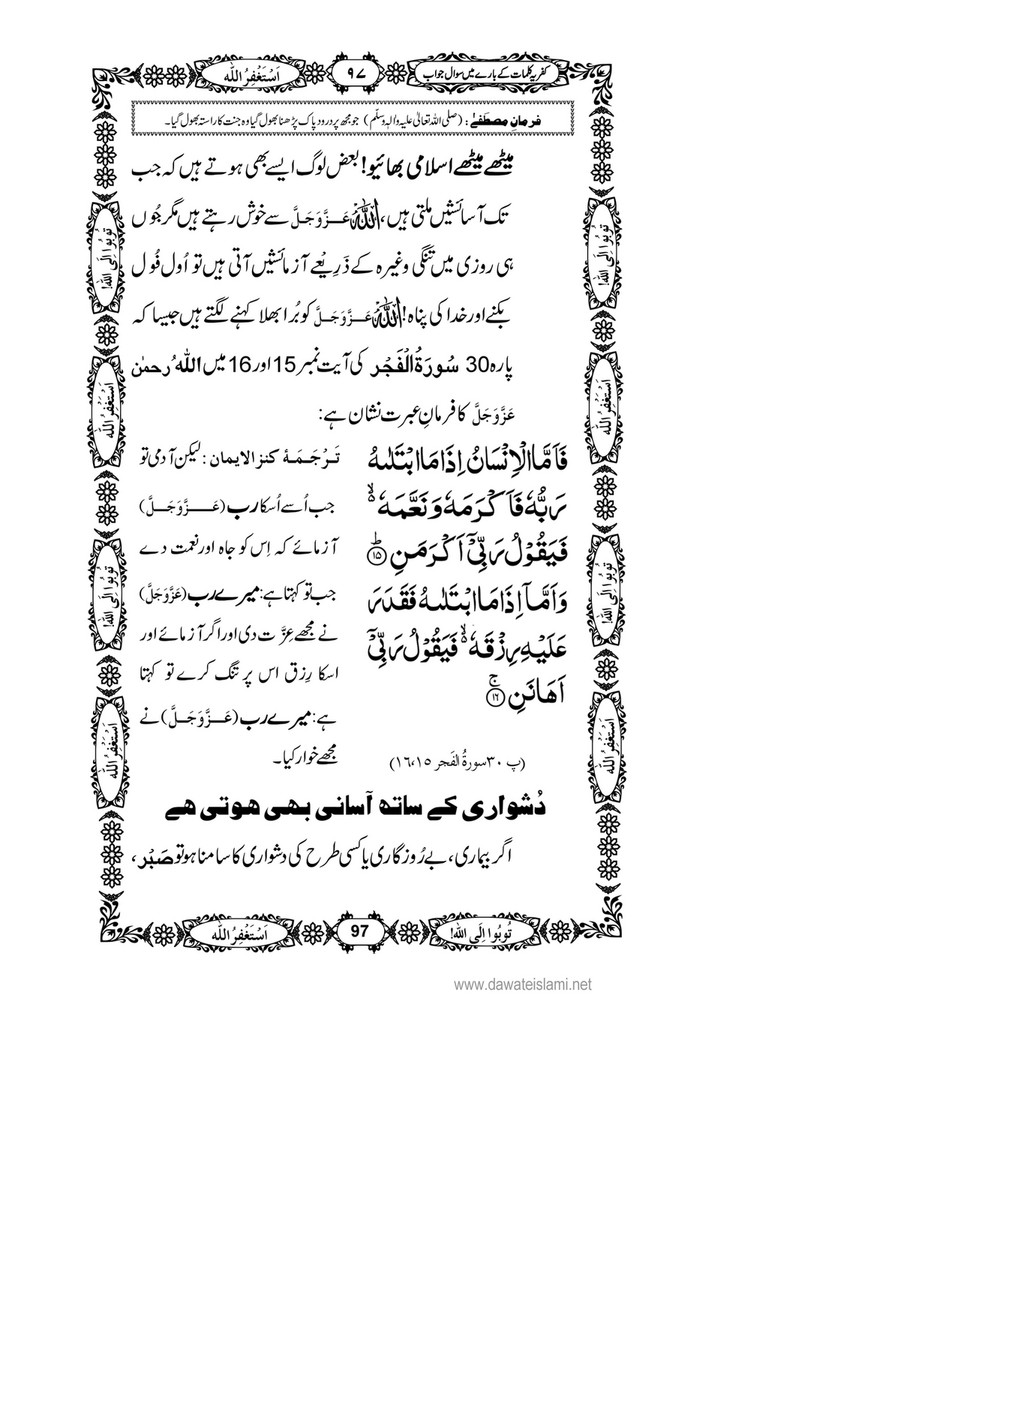 کفریہ کلمات کے بارے میں سوال جواب
۹۷
اَسْتَغْفِرُ اللّٰه
فرمانِ مصطفےٰ : (صلی اللہ تعالیٰ علیہ والہٖ وسلّم) جو مجھ پر درود پاک پڑھنا بھول گیا وہ جنت کا راستہ بھول گیا۔
میٹھے میٹھے اسلامی بھائیو! بعض لوگ ایسے بھی ہوتے ہیں کہ جب
تک آسائشیں ملتی ہیں، اللّٰہ عَزَّوَجَلَّ سے خوش رہتے ہیں مگر جُوں
ہی روزی میں تنگی وغیرہ کے ذَرِیعے آزمائشیں آتی ہیں تو اُول فُول
بکنے اور خدا کی پناہ! اللّٰہ عَزَّوَجَلَّ کو بُرا بھلا کہنے لگتے ہیں جیسا کہ
پارہ 30 سُورَۃُ الْفَجْر کی آیت نمبر 15 اور 16 میں اللّٰہُ رحمٰن
عَزَّوَجَلَّ کا فرمانِ عبرت نشان ہے:
فَاَمَّا الْاِنْسَانُ اِذَا مَا ابْتَلٰىهُ
رَبُّهٗ فَاَكْرَمَهٗ وَ نَعَّمَهٗ ۙ
فَيَقُوْلُ رَبِّیْۤ اَكْرَمَنِ ؕ ۱۵
وَ اَمَّاۤ اِذَا مَا ابْتَلٰىهُ فَقَدَرَ
عَلَيْهِ رِزْقَهٗ ۙ فَيَقُوْلُ رَبِّیْۤ
اَهَانَنِ ۚ ۱۶
(پ ۳۰ سورۃُ الفَجر ۱۵،۱۶)
تَرْجَمَۂ کنز الایمان : لیکن آدمی تو
جب اُسے اُسکا رب (عَزَّوَجَلَّ)
آزمائے کہ اِس کو جاہ اور نعمت دے
جب تو کہتا ہے: میرے رب (عَزَّوَجَلَّ)
نے مجھے عِزَّت دی اور اگر آزمائے اور
اسکا رِزق اس پر تنگ کرے تو کہتا
ہے: میرے رب (عَزَّوَجَلَّ) نے
مجھے خوار کیا۔
دُشواری کے ساتھ آسانی بھی ہوتی ہے
اگر بیماری، بے رُوزگاری یا کسی طرح کی دشواری کا سامنا ہو تو صَبْر،
تُوبُوا اِلَی اللّٰه!
اَسْتَغْفِرُ اللّٰه
تُوبُوا اِلَی اللّٰه!
اَسْتَغْفِرُ اللّٰه
تُوبُوا اِلَی اللّٰه!
اَسْتَغْفِرُ اللّٰه
تُوبُوا اِلَی اللّٰه!
اَسْتَغْفِرُ اللّٰه
تُوبُوا اِلَی اللّٰه!
97
اَسْتَغْفِرُ اللّٰه
www.dawateislami.net